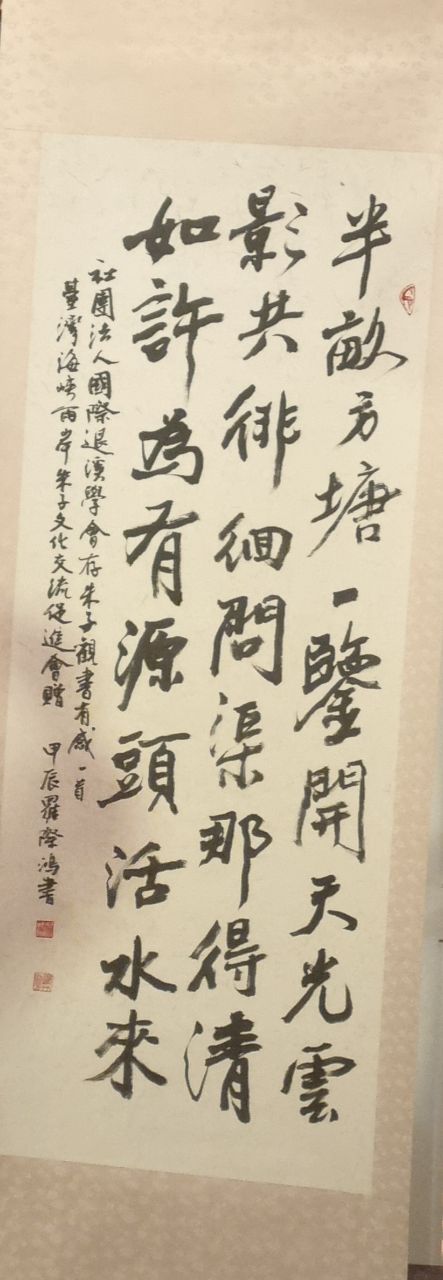 半畝方塘一鑒開天光雲
影共徘徊問渠那得清
如許為有源頭活水來
社團法人國際退溪學會存朱子觀書有感一首
臺灣海峽兩岸朱子文化交流促進會贈 甲辰羅際鴻書